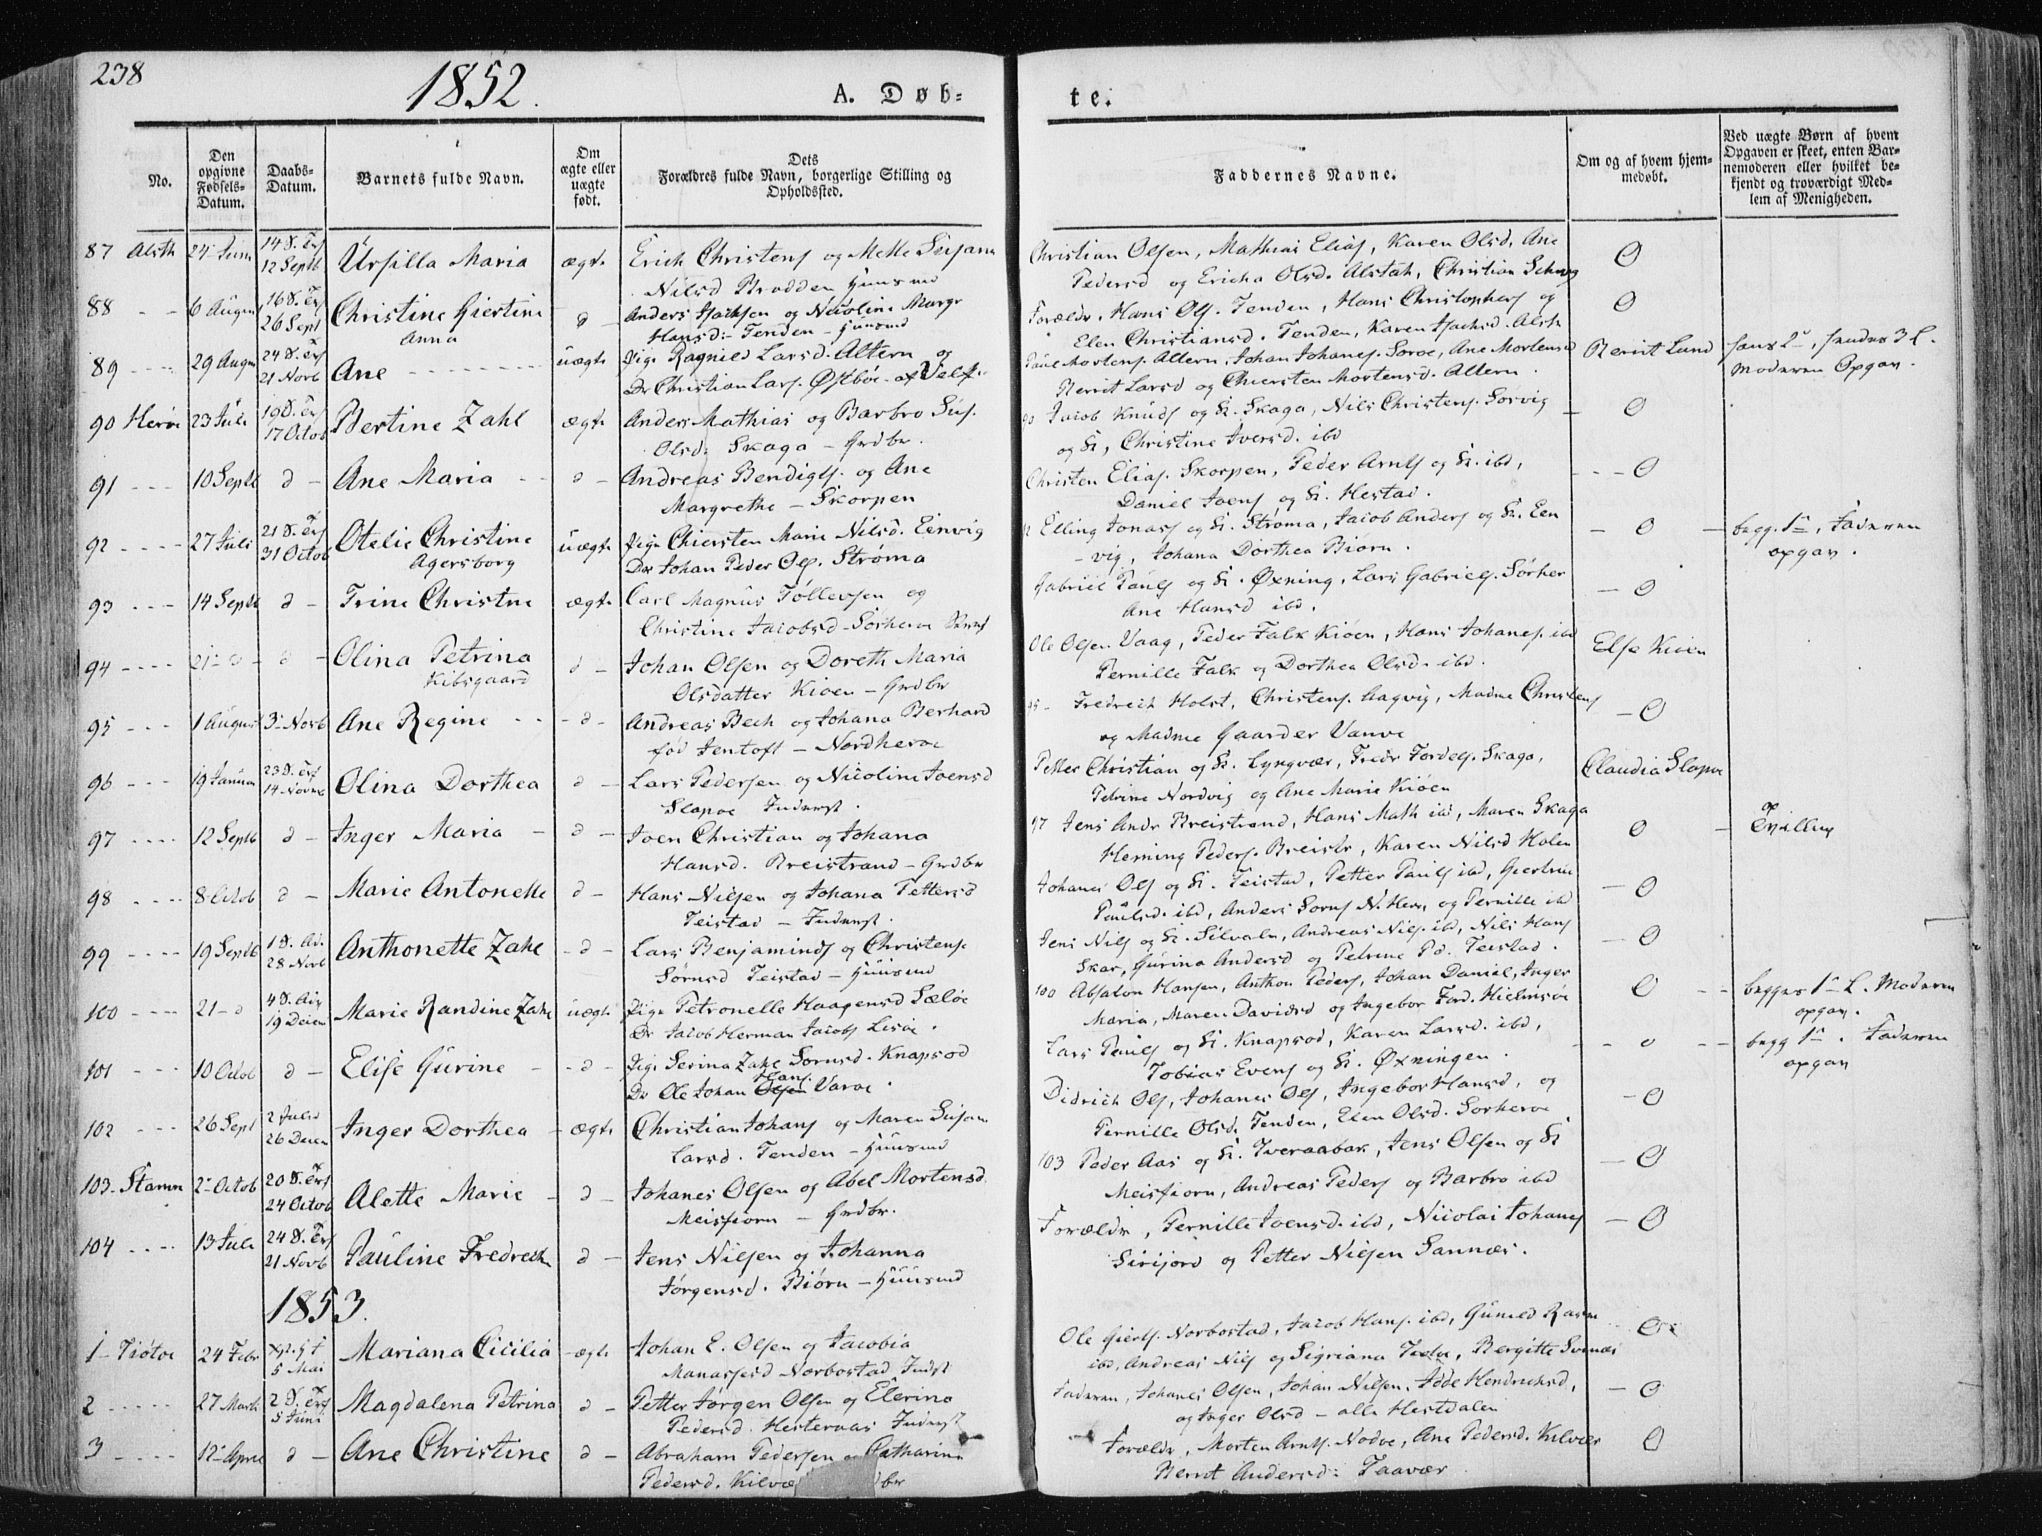 238
1852.
A. Døb-
te.
No.
Den opgivne Fødsels-Datum.
Daabs-Datum.
Barnets fulde Navn.
Om ægte eller uægte født.
Dets Forældres fulde Navn, borgerlige Stilling og Opholdssted.
Faddernes Navne.
Om og af hvem hjem-medøbt.
Ved uægte Børn af hvem Opgaven er skeet, enten Bar-nemoderen eller hvilket be-kjendt og troværdigt Med-lem af Menigheden.
87 Alsth 24 Juni 12 Septb Ursilla Maria ægte Erich Christens og Mette Susann
Nilsd Brodden Huusmd
Christian Olsen, Mathias Elias, Karen Olsd, Ane
Pedersd og Ericha Olsd. Alstah, Christian
O
88 6 August 26 Sept Christine Giertine
Anna
d Anders Isachsen og Nicoline Margr
Hansd. Tenden - Huusmd
Forældr, Hans Ols. Tenden, Hans Christophers og
Elen Christiansd. Tenden, Karen Isachsd. Alsth
O
89 29 August 21 Novb Ane uægte Pige Ragnild Larsd. Altern og
Dr Christian Lars. Østbøe
Paul Mortens. Altern, Johan Johanes. Sorøe, Ane Mortensd
Berrit Larsd og Chiersten Mortensd. Altern.
Berrit Lund
Moderen Opgav.
90 Herøe 23 Juli 17 Octob Bertine Zahl ægte Anders Mathias og Barbro Sus.
Olsd. Skaga - Grdbr.
Jacob Knuds og K. Skaga, Nils Christens. Sørvig
og K, Christine Iversd. ibd
O
91 10 Septb d Ane Maria d Andreas Bendigts. og Ane
Margrethe - Skorpen
Christen Elias. Skorpen, Peder Arnts og K. ibd,
Daniel Joens og K. Hestad.
O
92 27 Juli 31 Octob Otelie Christine
Agersborg
uægte Pige Chiersten Marie Nilsd. Einvig
Dr Johan Peder Ols. Strøma
Elling Jonas og K. Strøma, Jacob Anders og K. Een
-vig, Johana Dorthea Biørn.
O
begg. 1ste, Faderen
opgav.
93 14 Septb d Trine Christne ægte Carl Magnus Tollevsen og
Christine Jacobsd Sørherøe
Gabriel Pauls og K. Øxning, Lars Gabriels. Sørher
Ane Hansd ibd.
O
94 21 d d Olina Petrina
Kibsgaard
d Johan Olsen og Doreth Maria
Olsdatter Kiøen - Grdbr
Ole Olsen Vaag, Peder Falk Kiøen, Hans Johanes. ibd
Pernille Falk og Dorthea Olsd. ibd.
Else Kiøen
95 1 August 3 Novb Ane Regine d Andreas Bech og Johana Berhard
fød Jentoft - Nordherøe
Fredrich Holst, Christens. Aagvig, Madme Christens
og Madme Gaarder Vanve
O
96 19 Januar 14 Novmb Olina Dorthea d Lars Pedersen og Nicoline Joensd
Slapøe Inderst.
Petter Christian og K. Lyngvær, Fredr Fordels. Skaga,
Petrine Nordvig og Ane Marie Kiøen
Claudia Slapøe
97 12 Septb d Inger Maria d Joen Christian og Johana
Hansd. Breistrand - Grdbr
97 Jens Andr Breistrand, Hans Math ibd, Maren Skaga
Herning Peders. Breistr, Karen Nilsd Holen
O
Tvilling
98 8 Octob d Marie Antonette d Hans Nilsen og Johana Pettersd
Teistad - Inderst.
Johanes Ols og K. Teistad, Petter Pauls ibd, Giertrui
Paulsd. ibd, Anders Sorns N. Her, og Pernille ibd
O
99 19 Septb 28 Novb Anthonette Zahl d Lars Benjamins og Christense
Sørnsd Teistad - Huusmd
Jens Nils og K. Silvaln, Andreas Nils. ibd, Nils Hans
Skar, Gurina Andersd og Petrine Pd. Teistad.
O
100 21 d 19 Decm Marie Randine Zahl uægte Pige Petronelle Haagensd Sæløe
Dr Jacob Herman Jacobs
100 Absalon Hansen, Anthon Peders, Johan Daniel, Inger
Maria, Maren Davidsd og Ingebor Ford. Hielmsøe
O
begges 1ste L. Moderen
opgav.
101 10 Octob d Elise Gurine d Pige Serina Zahl Sørnsd. Knapsod
Hans.
Dr Ole Johan Olsen
Lars Pauls og K. Knapsod, Karen Larsd. ibd,
Tobias Evens og K. Øxningen.
o
begg 1ste. Faderen
opgav
102 26 Sept 2 Juled 26 Decem Inger Dorthea ægte Christian Johans og Maren Susann
Larsd. Tenden - Huusmd
Didrich Ols, Johanes Ols, Ingebor Hansd, og
Pernille Olsd. Tenden, Elen Olsd. Sørherøe
O
103 Stamn 2 Octob 24 Octob Alette Marie d Johanes Olsen og Abel Mortensd.
Meisfiorn - Grdbr.
103 Peder Aas og K. Iveraabak, Jens Olsen og K
Meisfiorn, Andreas Peders og Barbro ibd
O
104 13 Juli 21 Novb Pauline Fredrech d Jens Nilsen og Johanna
Jørgensd. Biørn - Huusmd
Forældr, Pernille Joensd. ibd, Nicolai Johanes
Sirijord og Petter Nilsen Sannæs.
O
1853.
1 Tiøtøe 24 Febr 5 Mai Mariana Cicilia ægte Johan E. Olsen og Jacobia
Manassesd Norbostad Indst
Ole Gierts. Norbostad, Jacob Hans. ibd, Gunild Rasm
ibd, Andreas Nils og Sigriana, Bergitte
O
2 27 Marts 5 Juni Magdalena Petrina d Petter Jørgen Olsen og Elerina
Pedersd. Hesteraas Inderst
Faderen, Johanes Olsen, Johan Nilsen, Hendrichsd,
og Inger Olsd - alle Hestdalen
O
3 12 April d Ane Christine d Abraham Pedersen Catharina
Pedersd. Kilvæ dbr
Forældr, Morten Arnts. Nodve, Ane Pedersd. Kilvær
Berrit Andersd: Taavær
O